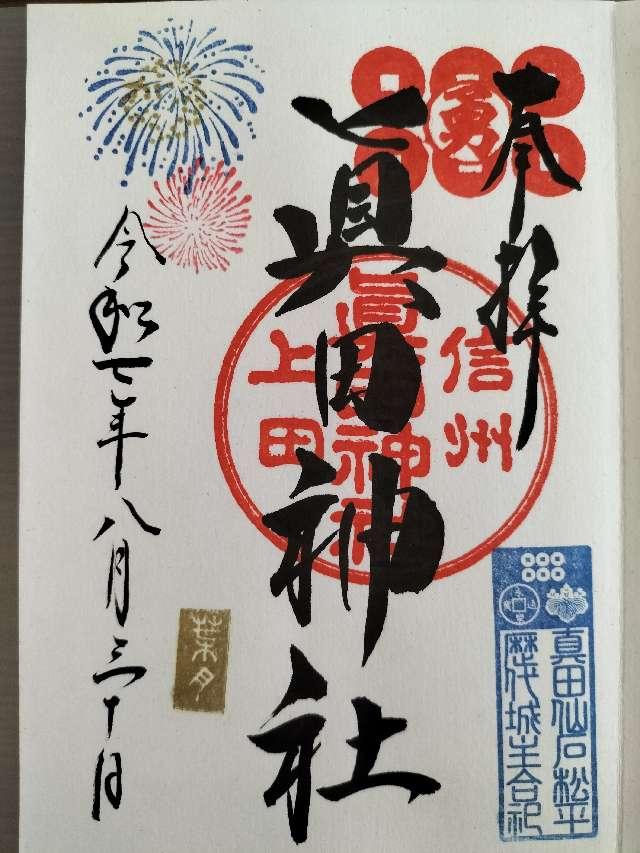 奉拝
勇
信州
眞田神社
上田
眞田神社
真田仙石松平
歴代城主合祀
葉月
令和七年八月三十日